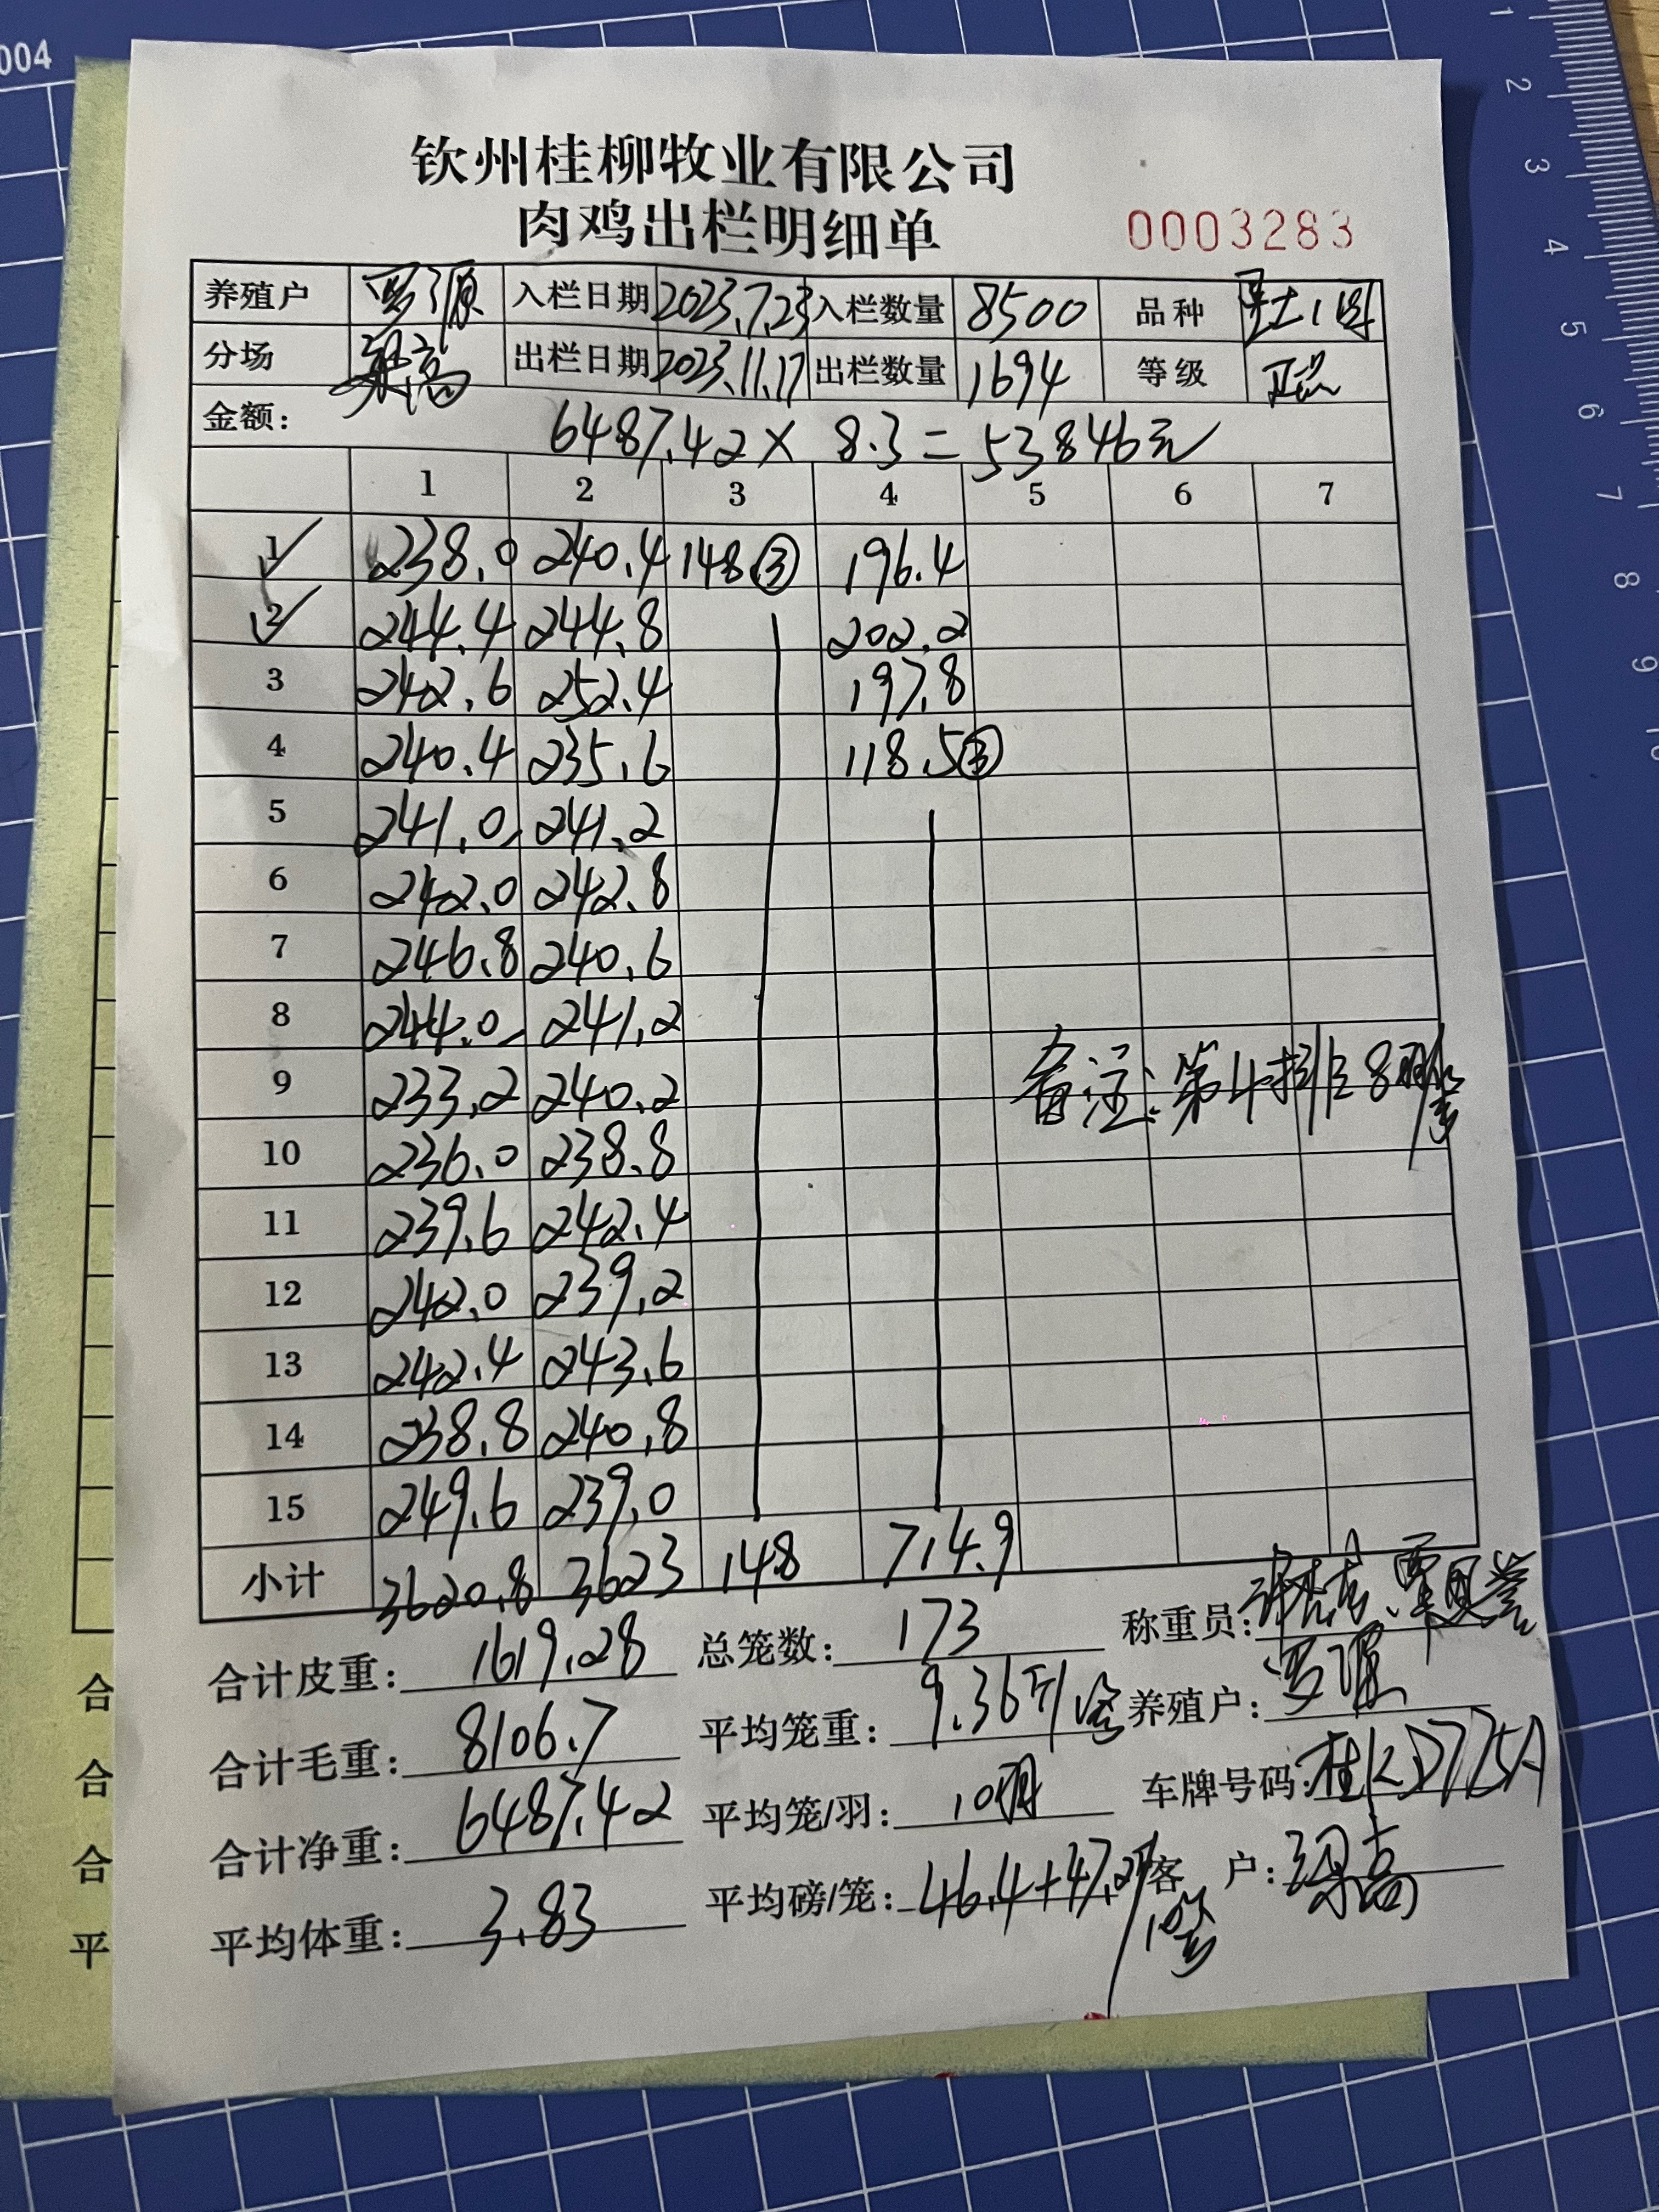 004
钦州桂柳牧业有限公司
肉鸡出栏明细单
0003283
养殖户 罗源 入栏日期 2023.7.23 入栏数量 8500 品种
分场 梁高 出栏日期 2023.11.17 出栏数量 1694 等级 正品
金额: 6487.42 × 8.3 = 53846元
1 2 3 4 5 6 7
1 238.0 240.4 148③ 196.4
2 244.4 244.8 202.2
3 242.6 252.4 197.8
4 240.4 235.6 118.5③
5 241.0 241.2
6 242.0 242.8
7 246.8 240.6
8 244.0 241.2
9 233.2 240.2 备注:第4排8羽/笼
10 236.0 238.8
11 239.6 242.4
12 242.0 239.2
13 242.4 243.6
14 238.8 240.8
15 249.6 239.0
小计 3620.8 3623 148 714.9
合计皮重: 1619.28 总笼数: 173 称重员:
合计毛重: 8106.7 平均笼重: 9.36斤/笼 养殖户: 罗源
合计净重: 6487.42 平均笼/羽: 10羽 车牌号码: 桂KD775A
平均体重: 3.83 平均磅/笼: 46.4+47.2 客 户: 梁高
合
合
合
平
1
2
3
4
5
6
7
8
9
10